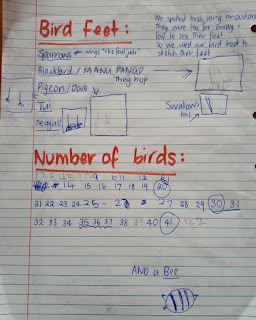 Bird Feet:
We spotted birds using binoculars
They were too far away to
see to see their feet
So we used our bird book to
sketch their feet
Sparrows wings
Blackbird / MANU PANGO
They hop
Pigeon / Dove
Tui
Seagull
Swallows
tail
Number of birds:
9 10 11 12
14 15 16 17 18 19 20
21 22 23 24 25 - 27 28 29 30 31
32 33 34 35 36 37 38 39 40 41 42
AND a Bee